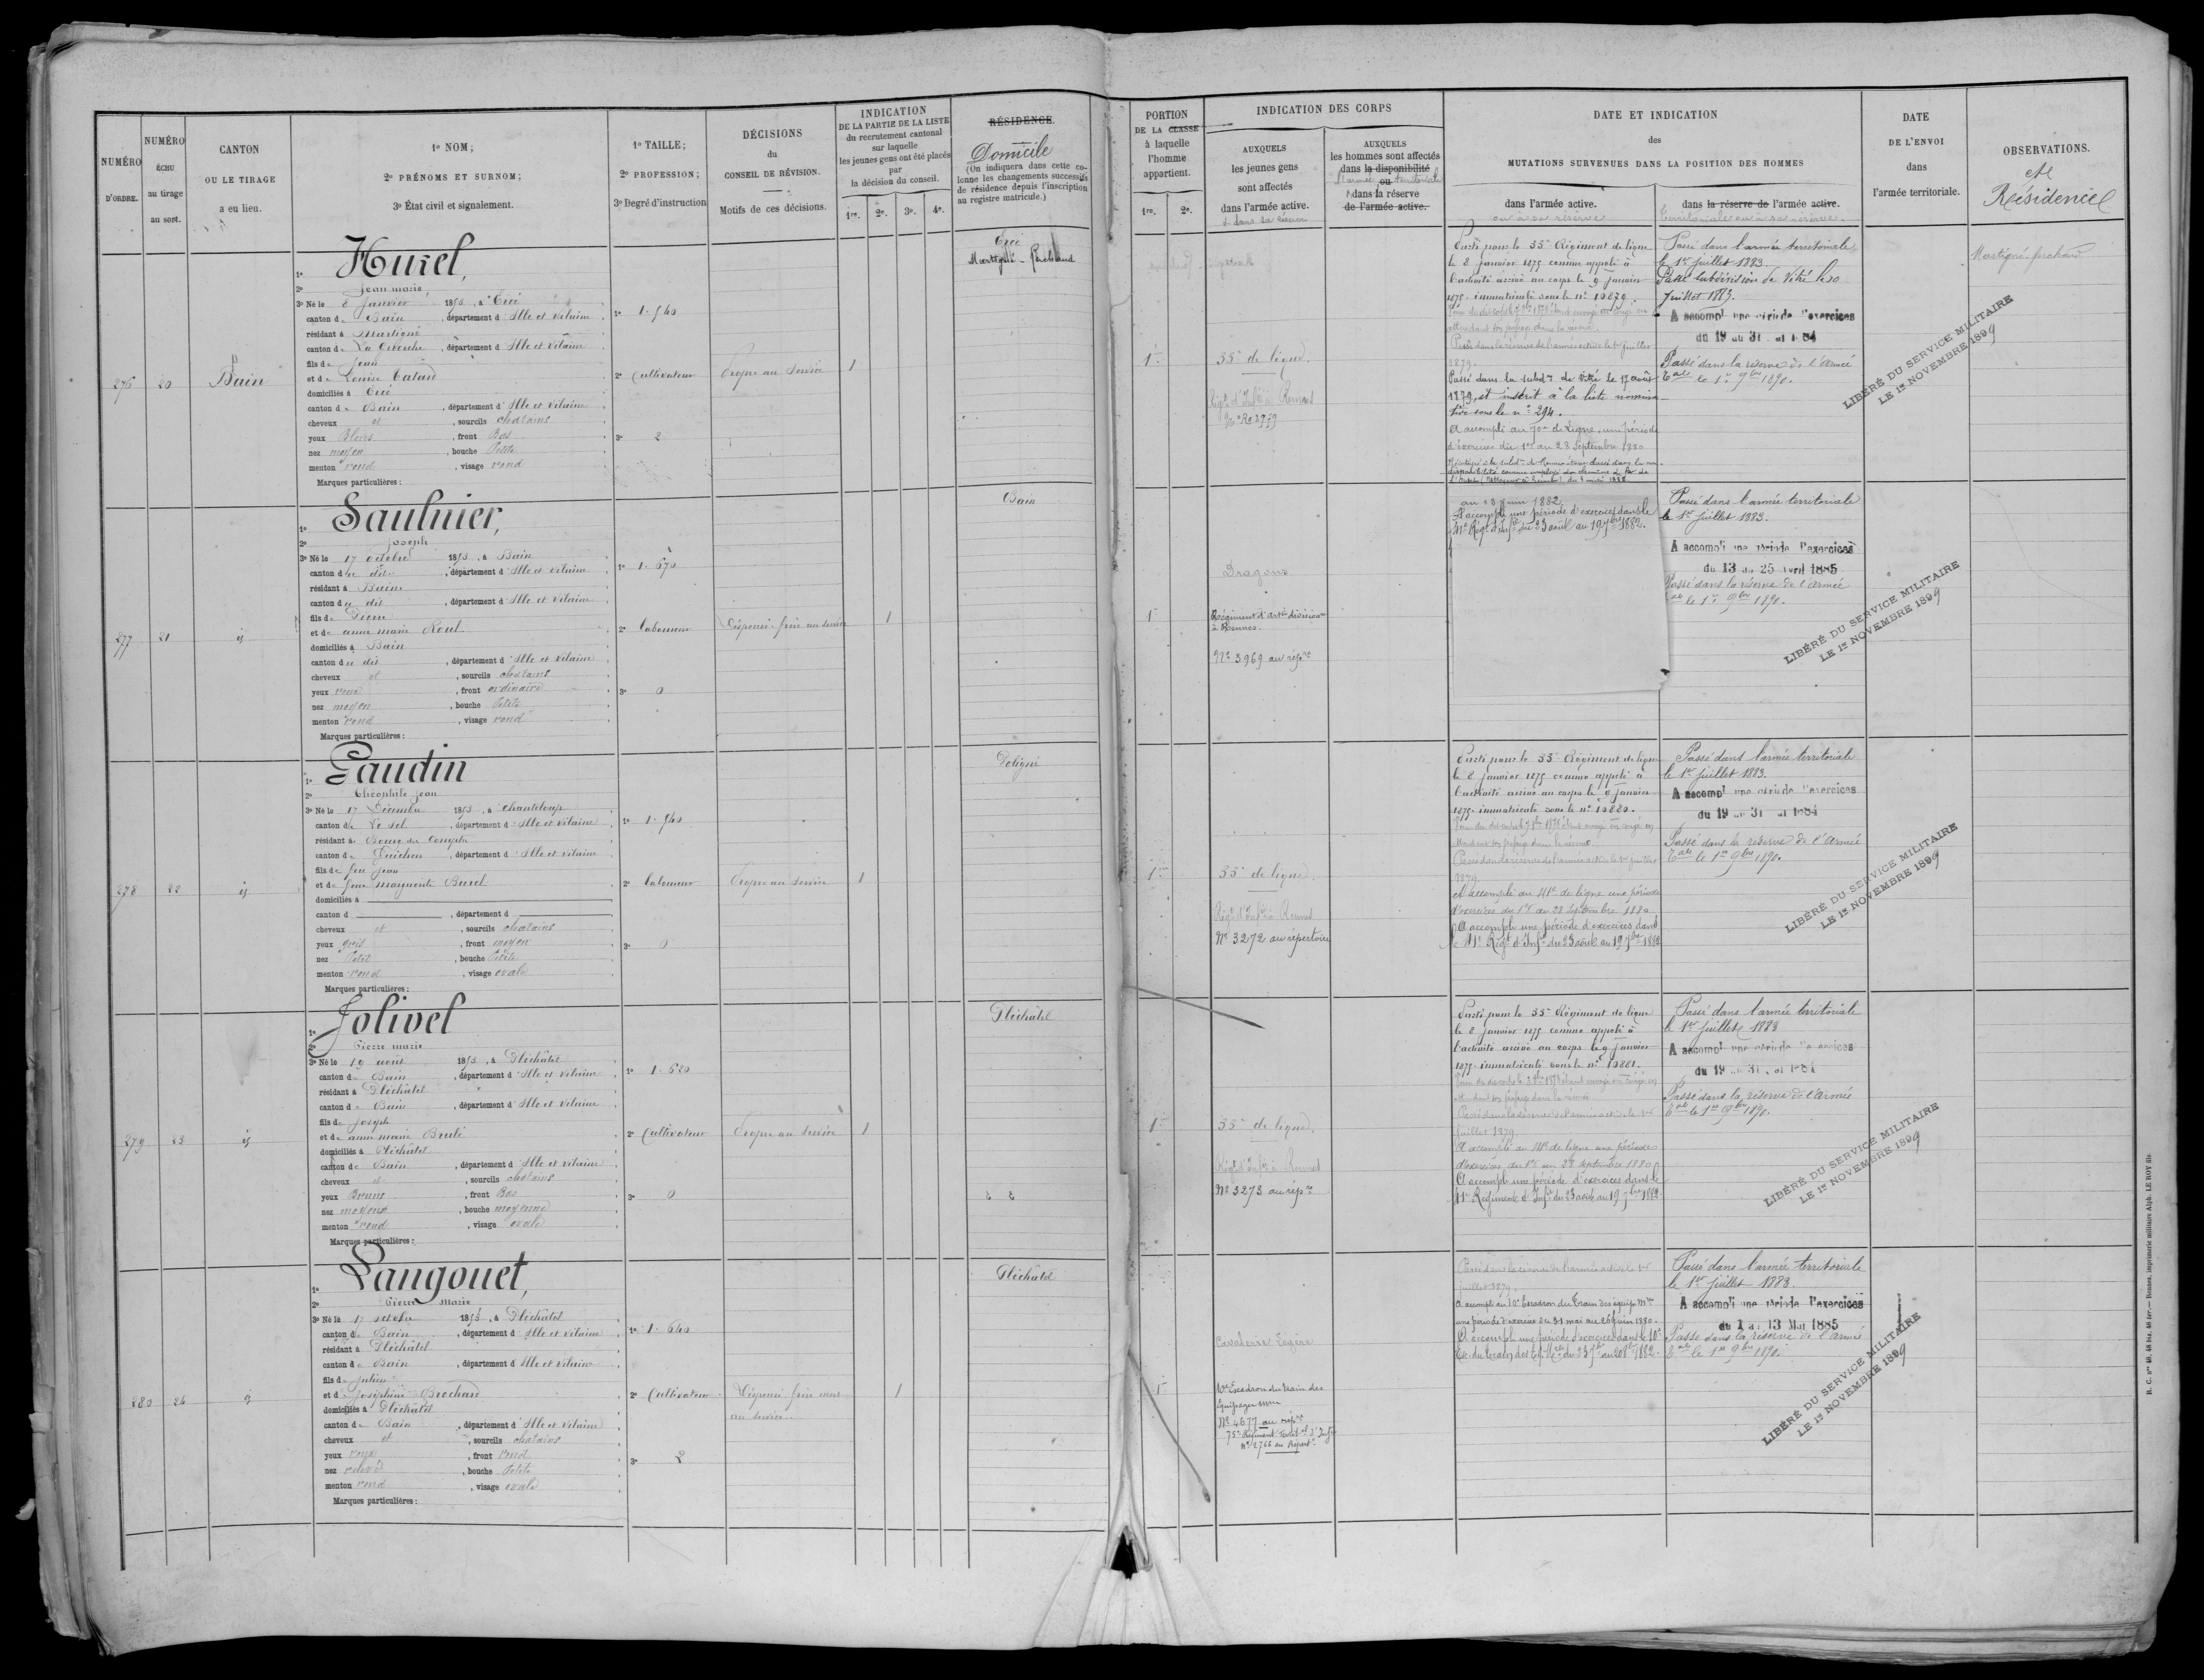 NUMÉRO
D'ORDRE.
NUMÉRO
ÉCHU
au tirage
au sort.
CANTON
OU LE TIRAGE
a eu lieu.
1º NOM;
2º PRÉNOMS ET SURNOM;
3º État civil et signalement.
1º TAILLE;
2º PROFESSION;
3º Degré d'instruction
DÉCISIONS
du
CONSEIL DE RÉVISION.
Motifs de ces décisions.
INDICATION
DE LA PARTIE DE LA LISTE
du recrutement cantonal
sur laquelle
les jeunes gens ont été placés
par
la décision du conseil.
1re. 2e. 3e. 4e.
RÉSIDENCE.
Domicile
(On indiquera dans cette co-
lonne les changements successifs
de résidence depuis l'inscription
au registre matricule.)
PORTION
DE LA CLASSE
à laquelle
l'homme
appartient.
1re. 2e.
INDICATION DES CORPS
AUXQUELS
les jeunes gens
sont affectés
dans l'armée active.
& dans sa réserve
AUXQUELS
les hommes sont affectés
dans la disponibilité
ou
l'armée territoriale
dans la réserve
de l'armée active.
DATE ET INDICATION
des
MUTATIONS SURVENUES DANS LA POSITION DES HOMMES
dans l'armée active.
ou à sa réserve
dans la réserve de l'armée active.
territoriale ou à sa réserve.
DATE
DE L'ENVOI
dans
l'armée territoriale.
OBSERVATIONS.
et
Résidence
276
20
Bain
1º Hurel,
2º Jean marie
3º Né le 8 Janvier 1853, à Ercé
canton de Bain, département d'Ille et Vilaine
résidant à Martigné
canton de La Guerche, département d'Ille et Vilaine
fils de Jean
et de Louise Catard
domiciliés à Ercé
canton de Bain, département d'Ille et Vilaine
cheveux et, sourcils chatains
yeux Bleus, front Bas
nez moyen, bouche Petite
menton rond, visage rond
Marques particulières :
1º 1.540
2º Cultivateur
3º 2
Propre au service
1
Ercé
Martigné-Ferchaud
1re
35e de ligne.
Régt d'Infie à Rennes
Parti pour le 35e Régiment de ligne
le 8 janvier 1875 comme appelé à
l'activité arrivé au corps le 9 janvier
1875 immatriculé sous le nº 10879.
Passé dans la réserve de l'armée active le 1er juillet
1879.
Passé dans la subdon de Vitré le 17 août
1879, et inscrit à la liste nomina-
tive sous le nº 294.
A accompli au 70e de Ligne, une période
d'exercices du 1er au 28 Septembre 1880
Passé dans l'armée territoriale
le 1er juillet 1883.
Passé subdivision de Vitré le 20
Juillet 1883.
A accompli une période d'exercices
du 19 au 31
Passé dans la réserve de l'Armée
Tale le 1er 9bre 1890.
LIBÉRÉ DU SERVICE MILITAIRE
LE 1er NOVEMBRE 1899
Martigné-ferchaud
277
21
id
1º Saulnier,
2º Joseph
3º Né le 17 octobre 1853, à Bain
canton du dit, département d'Ille et Vilaine
résidant à Bain
canton du dit, département d'Ille et Vilaine
fils de Pierre
et de anne marie Roul
domiciliés à Bain
canton du dit, département d'Ille et Vilaine
cheveux et, sourcils chatains
yeux roux, front ordinaire
nez moyen, bouche Petite
menton rond, visage rond
Marques particulières :
1º 1.670
2º laboureur
3º 0
Dispensé frère au service
1
Bain
1re
Dragons
Régiment d'artie divisionre
à Rennes.
Nº 3969 au répre
au 18 juin 1882.
A accompli une période d'exercices dans le
41e Régt d'Infie du 23 août au 19 7bre 1882.
Passé dans l'armée territoriale
le 1er juillet 1883.
A accompli une période d'exercices
du 13 au 25 avril 1885
Passé dans la réserve de l'Armée
Tale le 1er 9bre 1890.
LIBÉRÉ DU SERVICE MILITAIRE
LE 1er NOVEMBRE 1899
278
22
id
1º Gaudin
2º Théophile Jean
3º Né le 17 Décembre 1853, à Chanteloup
canton de Le Sel, département d'Ille et Vilaine
résidant à Bourg des Comptes
canton de Guichen, département d'Ille et Vilaine
fils de feu Jean
et de feue Marguerite Burel
domiciliés à
canton d, département d
cheveux et, sourcils chatains
yeux gris, front moyen
nez Petit, bouche Petite
menton rond, visage ovale
Marques particulières :
1º 1.540
2º laboureur
3º 0
Propre au service
1
Poligné
1re
35e de ligne.
Régt d'Infie à Rennes
Nº 3272 au répertoire
Parti pour le 35e Régiment de ligne
le 8 janvier 1875 comme appelé à
l'activité arrivé au corps le 9 janvier
1875 immatriculé sous le nº 10880.
Passé dans la réserve de l'armée active le 1er juillet
1879.
A accompli au 41e de ligne une période
d'exercices du 1er au 28 Septembre 1880
A accompli une période d'exercices dans
le 41e Régt d'Infie du 23 août au 19 7bre 1882
Passé dans l'armée territoriale
le 1er juillet 1883.
A accompli une période d'exercices
du 19 au 31
Passé dans la réserve de l'Armée
Tale le 1er 9bre 1890.
LIBÉRÉ DU SERVICE MILITAIRE
LE 1er NOVEMBRE 1899
279
23
id
1º Jolivel
2º Pierre marie
3º Né le 19 août 1853, à Pléchâtel
canton de Bain, département d'Ille et Vilaine
résidant à Pléchâtel
canton de Bain, département d'Ille et Vilaine
fils de Joseph
et de anne marie Brulé
domiciliés à Pléchâtel
canton de Bain, département d'Ille et Vilaine
cheveux et, sourcils chatains
yeux Bruns, front Bas
nez moyen, bouche moyenne
menton rond, visage ovale
Marques particulières :
1º 1.620
2º Cultivateur
3º 0
Propre au service
1
Pléchâtel
1re
35e de ligne.
Régt d'Infie à Rennes
Nº 3273 au répre
Parti pour le 35e Régiment de ligne
le 8 janvier 1875 comme appelé à
l'activité arrivé au corps le 9 janvier
1875 immatriculé sous le nº 10881.
Passé dans la réserve de l'armée active le 1er
juillet 1879
A accompli au 41e de ligne une période
d'exercices du 1er au 28 septembre 1880
A accompli une période d'exercices dans le
41e Régiment d'Infie du 23 août au 19 7bre 1882
Passé dans l'armée territoriale
le 1er juillet 1883
A accompli une période d'exercices
du 19 au 31
Passé dans la réserve de l'Armée
Tale le 1er 9bre 1890.
LIBÉRÉ DU SERVICE MILITAIRE
LE 1er NOVEMBRE 1899
280
24
id
1º Langouet,
2º Pierre Marie
3º Né le 17 octobre 1853, à Pléchâtel
canton de Bain, département d'Ille et Vilaine
résidant à Pléchâtel
canton de Bain, département d'Ille et Vilaine
fils de Julien
et de Joséphine Brochard
domiciliés à Pléchâtel
canton de Bain, département d'Ille et Vilaine
cheveux et, sourcils chatains
yeux roux, front rond
nez relevé, bouche Petite
menton rond, visage ovale
Marques particulières :
1º 1.640
2º Cultivateur
3º 2
Dispensé frère
au service.
1
Pléchâtel
1re
Cavalerie légère
10e Escadron du train des
Équipages mres
Nº 4677 au répre
75e Régiment Territal d'Infie
Nº 2766 au Répertre
Passé dans la réserve de l'armée active le 1er
juillet 1879.
A accompli au 10e Escadron du Train des équip. mres
une période d'exercices du 31 mai au 26 juin 1880.
A accompli une période d'exercices dans le 10e
Passé dans l'armée territoriale
le 1er juillet 1883.
A accompli une période d'exercices
du 1 au 13 Mai 1885
Passé dans la réserve de l'Armée
Tale le 1er 9bre 1890.
LIBÉRÉ DU SERVICE MILITAIRE
LE 1er NOVEMBRE 1899
R. C. nos 48, 48 bis, 48 ter.— Rennes, imprimerie militaire Alph. LE ROY fils